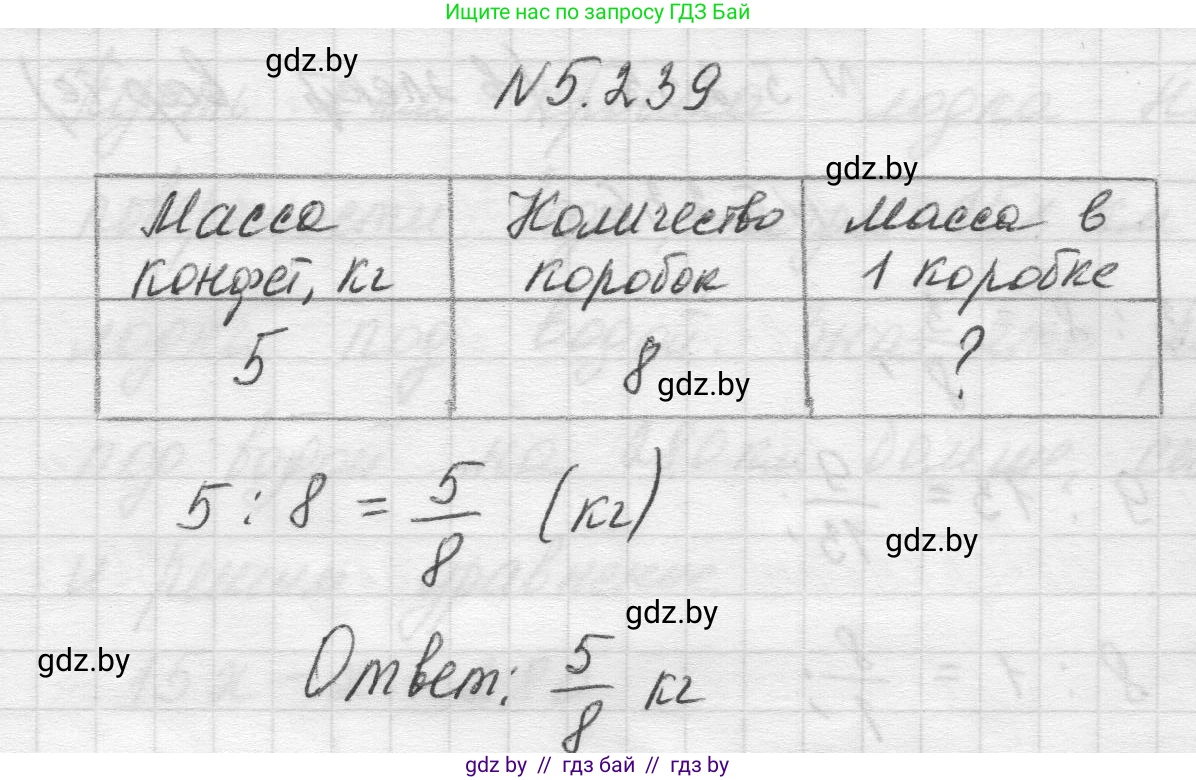 Ищите нас по запросу ГДЗ Бай
gdz.by
N 5.239
gdz.by
Масса конфет, кг
Количество коробок
Масса в 1 коробке
5
8
?
gdz.by
5 : 8 = 5/8 (кг)
gdz.by
gdz.by
gdz.by
Ответ: 5/8 кг
gdz.by // гдз бай // гдз by